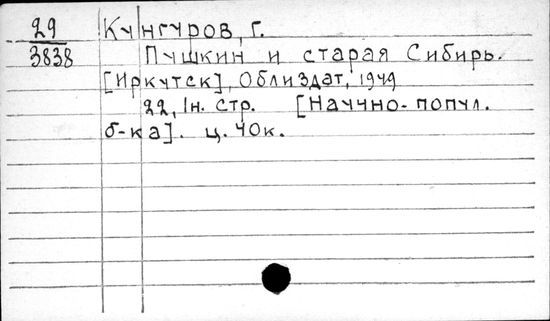 29 Кунгуров, Г.
3838 Пушкин и старая Сибирь.
[Иркутск], Облиздат, 1949
22, Iн. стр. [Научно-попул.
б-ка]. ц. 40к.